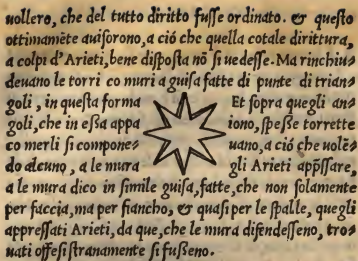 uollero, che del tutto diritto fuſſe ordinato. & queſto
ottimamẽte auiſorono, a ció che quella cotale dirittura,
a colpi d'Arieti, bene diſpoſta nõ ſi uedeſſe. Ma rinchiu⸗
deuano le torri co muri a guiſa fatte di punte di trian⸗
goli, in queſta forma Et ſopra quegli an⸗
goli, che in eſſa appa iono, ſpeſſe torrette
co merli ſi compone⸗ uano, a ció che uolẽ⸗
do alcuno, a le mura gli Arieti appſſare,
a le mura dico in ſimile guiſa, fatte, che non ſolamente
per faccia, ma per fianco, & quaſi per le ſpalle, quegli
appreſſati Arieti, da que, che le mura difendeſſeno, tro⸗
uati offeſi ſtranamente ſi fuſſeno.